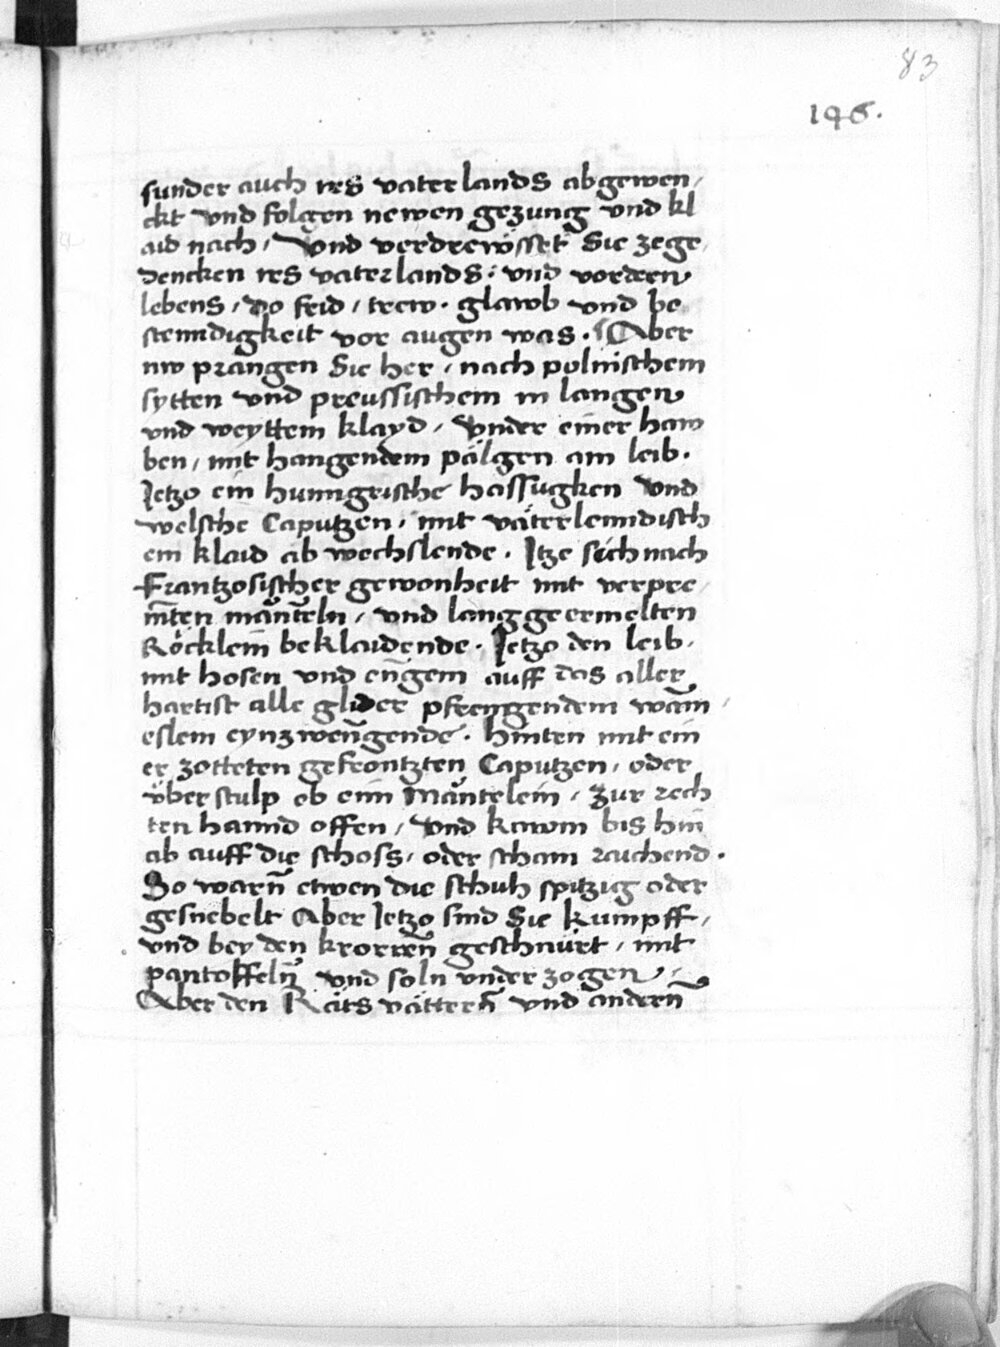 83
146.
sunder auch ires vaterlands abgewen,
ckt vnd folgen newen gezung vnd kl
aid nach, Vnd verdrewsset Sie zege,
dencken ires vaterlands: vnd vordern
lebens, Do frid, trew. glawb vnd be
stenndigkeit vor augen was. Aber
nw prangen Sie her, nach polnischem
sytten vnd preussischem in langen
vnd weyttem klayd, Vnnder einer haw
ben, mit hangendem pälgen am leib.
Jetzo ein hunngrische hassugken Vnd
welsche Caputzen, mit väterlenndisch
em klaid ab wechslende. Itze sich nach
Frantzosischer gewonheit mit verpre,
m̄ten män̄teln, vnd lang geermelten
Röcklein̄ beklaidende. Jetzo den leib.
mit hosen vnd en̄gem auff das aller
hartist alle glider pfrenngendem wām
eslem eynzwen̄gende. Hinten mit ein
er zotteten gefrontzten Caputzen, oder
vberstulp ob eim Mäntelein, Zur rech
ten hannd offen, Vnd kawm bis hin
ab auff die schoss, oder scham raichend.
So warn̄ etwen die schuh spitzig oder
gesnebelt Aber Jetzo sind Sie kumpff,
vnd bey den krorren̄ geschnürt, mit
pantoffeln̄ vnd soln vnder zogen,
Aber den Räts vättern̄ vnd andern̄